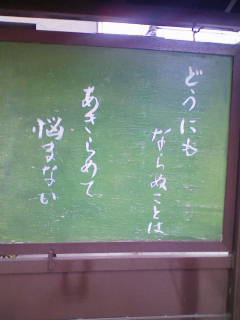 どうにも
ならぬことは
あきらめて
悩まない